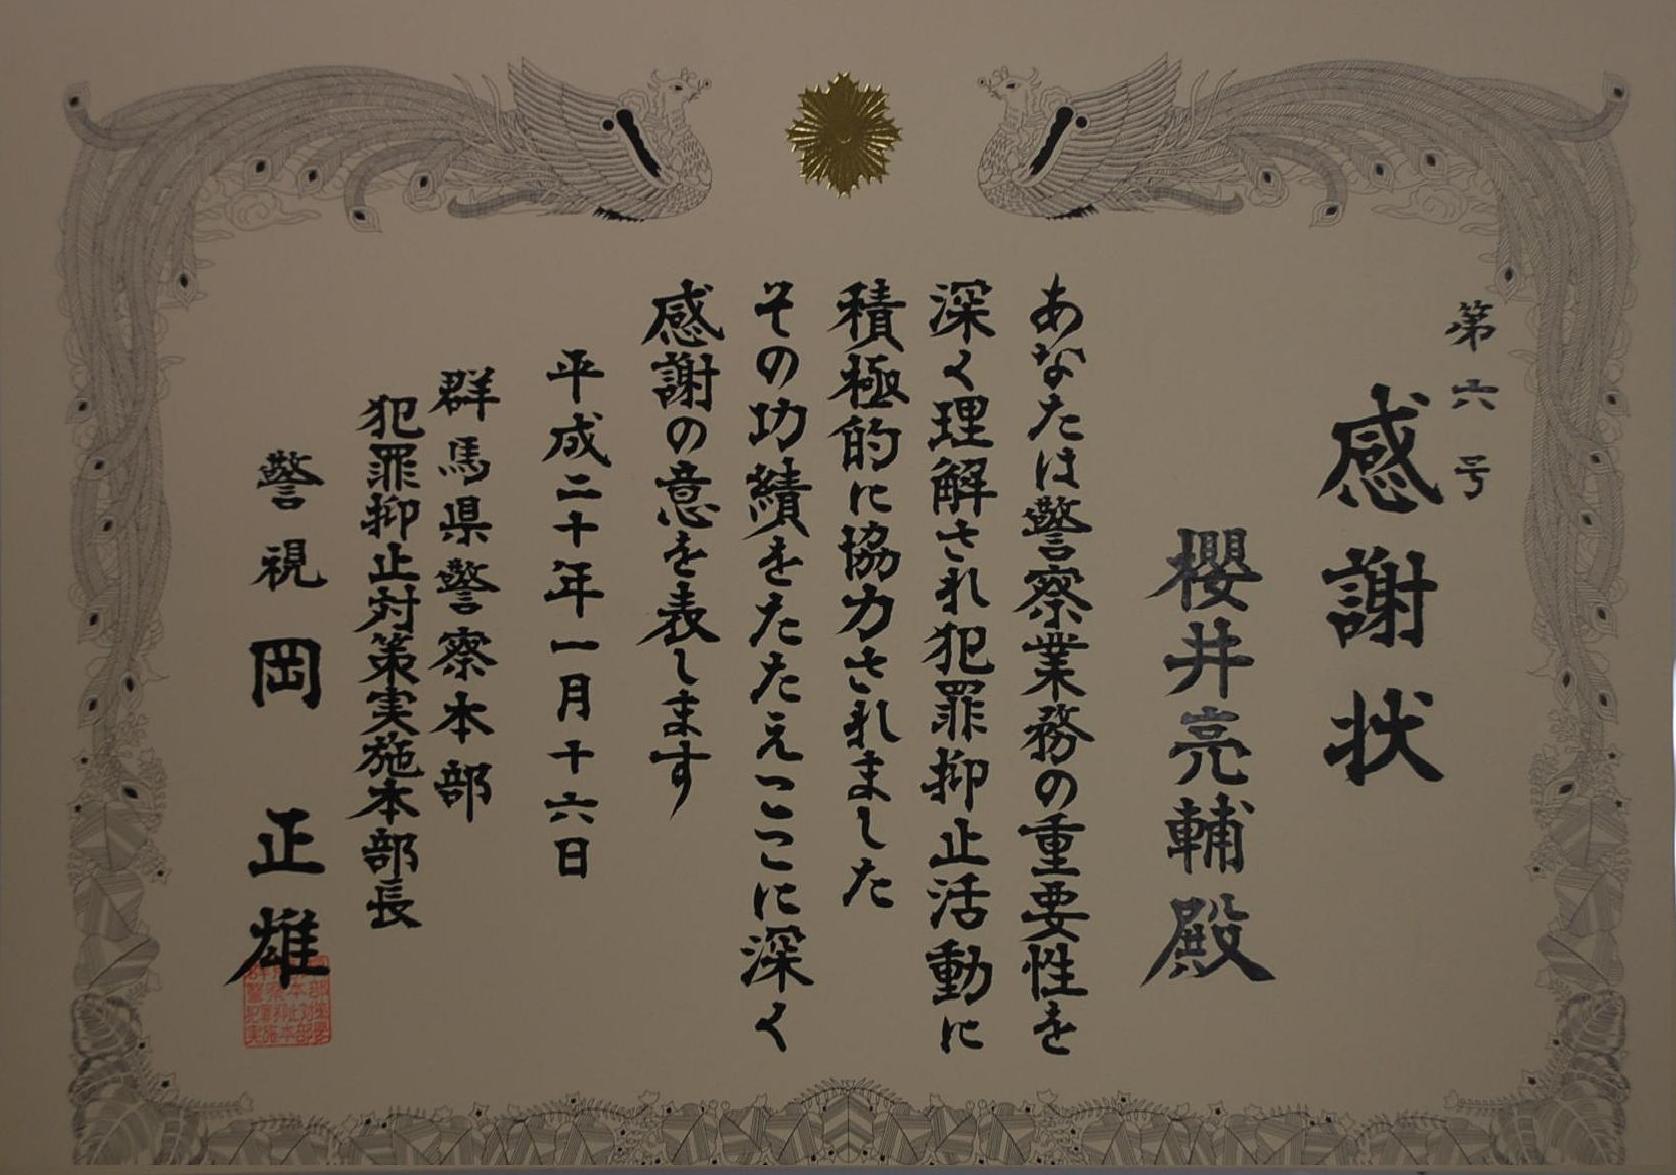 第六号
感謝状
櫻井亮輔殿
あなたは警察業務の重要性を
深く理解され犯罪抑止活動に
積極的に協力されました
その功績をたたえここに深く
感謝の意を表します
平成二十年一月十六日
群馬県警察本部
犯罪抑止対策実施本部長
警視 岡 正雄